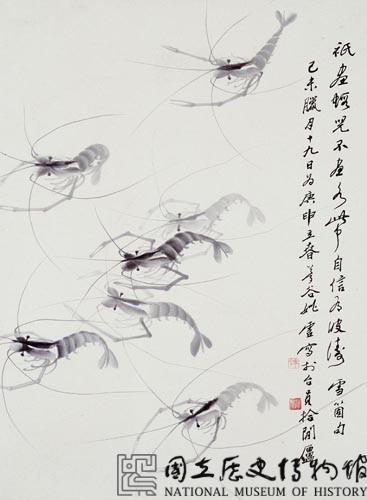 祇畫蝦兒不畫水此中自信有波濤 雪箇句
己未臘月十九日為庚申立春夢谷姚雲寫於台員拾閒廬
國立歷史博物館
NATIONAL MUSEUM OF HISTORY